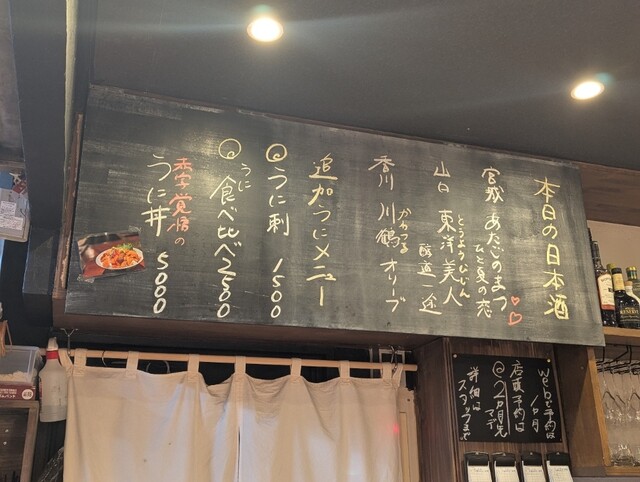 本日の日本酒
宮城 あたごのまつ
ひと夏の恋
山口 東洋美人
とうようびじん
醇道一途
香川 川鶴 オリーブ
かわつる
追加うにメニュー
◎うに刺 1500
◎うに食べ比べ 2500
赤字覚悟の
うに丼 5000
Web予約は
1ヵ月
店頭予約は
◎2ヵ月先
マデ
詳細は
スタッフまで